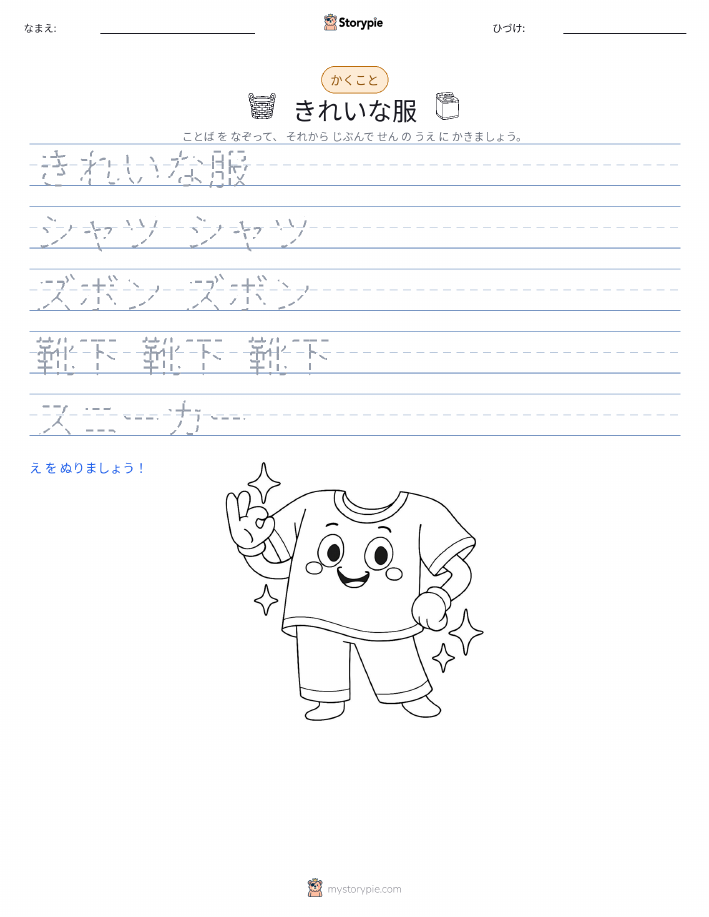 なまえ:
Storypie
ひづけ:
かくこと
きれいな服
ことば を なぞって、 それから じぶんで せん の うえ に かきましょう。
きれいな服
シャツ シャツ
ズボン ズボン
靴下 靴下 靴下
スニーカー
え を ぬりましょう！
mystorypie.com